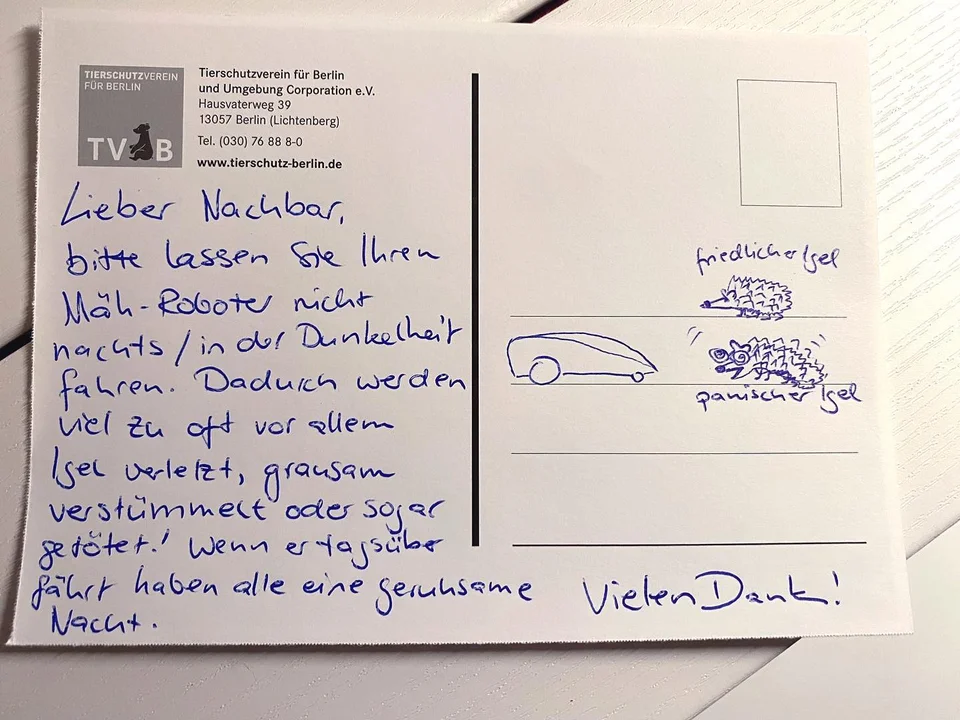 TIERSCHUTZVEREIN
FÜR BERLIN
TVB
Tierschutzverein für Berlin
und Umgebung Corporation e.V.
Hausvaterweg 39
13057 Berlin (Lichtenberg)
Tel. (030) 76 88 8-0
www.tierschutz-berlin.de
Lieber Nachbar,
bitte lassen Sie Ihren
Mäh-Roboter nicht
nachts / in der Dunkelheit
fahren. Dadurch werden
viel zu oft vor allem
Igel verletzt, grausam
verstümmelt oder sogar
getötet! Wenn er tagsüber
fährt haben alle eine geruhsame
Nacht.
friedlicher Igel
panischer Igel
Vielen Dank!